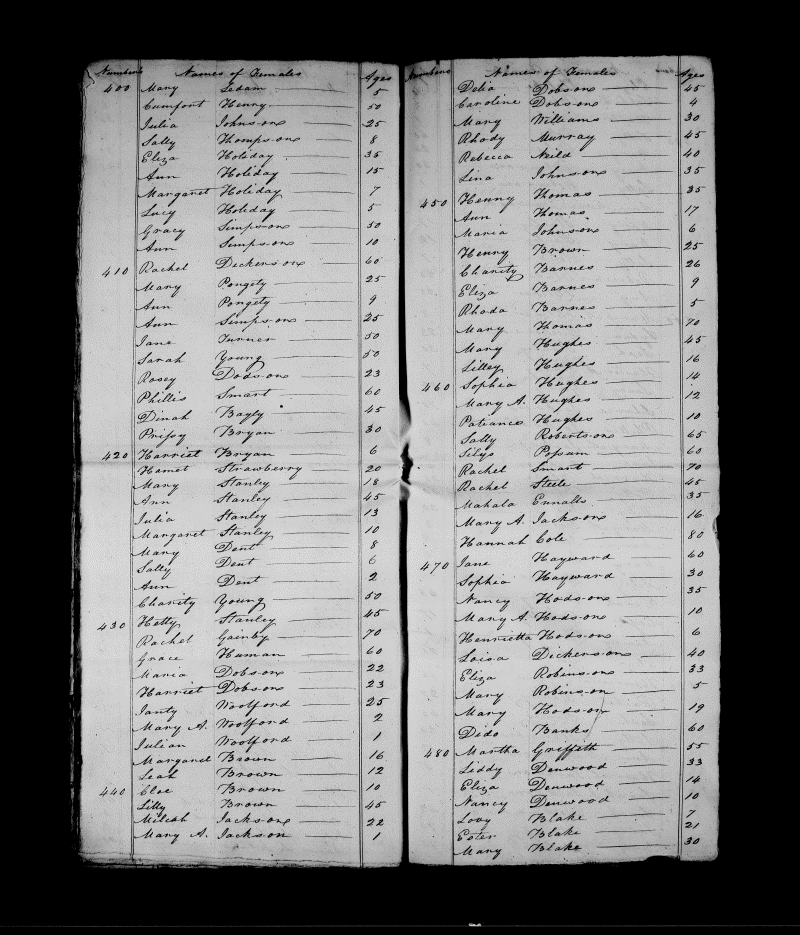 Numbers Names of Females Ages
400 Mary Sedam 5
Cumfort Henry 50
Julia Johnson 25
Sally Thompson 8
Eliza Holiday 35
Ann Holiday 15
Margaret Holiday 7
Lucy Holiday 5
Gracy Simpson 50
Ann Simpson 10
410 Rachel Dickerson 60
Mary Pongety 25
Ann Pongety 9
Ann Simpson 25
Jane Turner 50
Sarah Young 50
Rosey Dodson 23
Phillis Smart 60
Dinah Bagly 45
Prissy Bryan 30
420 Harriet Bryan 6
Hamet Strawberry 20
Mary Stanley 18
Ann Stanley 45
Julia Stanley 13
Margaret Stanley 10
Mary Dent 8
Sally Dent 6
Ann Dent 2
Charity Young 50
430 Hetty Stanley 45
Rachel Gainby 70
Grace Human 60
Maria Dobson 22
Harriet Dobson 23
Janty Woolford 25
Mary A. Woolford 2
Julian Woolford 1
Margaret Brown 16
Leah Brown 12
440 Cloe Brown 10
Lilly Brown 45
Milcah Jackson 22
Mary A. Jackson 1
Numbers Names of Females Ages
Delia Dobson 45
Caroline Dobson 4
Mary Williams 30
Rhody Murray 45
Rebecca Neild 40
Lina Johnson 35
450 Henny Thomas 35
Ann Thomas 17
Maria Johnson 6
Henny Brown 25
Charity Barnes 26
Eliza Barnes 9
Rhoda Barnes 5
Mary Thomas 70
Mary Hughes 45
Lilley Hughes 16
460 Sophia Hughes 14
Mary A. Hughes 12
Patiance Hughes 10
Sally Robertson 65
Silys Possum 60
Rachel Smart 70
Rachel Steele 45
Mahala Ennalls 35
Mary A. Jackson 16
Hannah Cole 80
470 Jane Hayward 60
Sophia Hayward 30
Nancy Hodson 35
Mary A. Hodson 10
Henrietta Hodson 6
Loisa Dickerson 40
Eliza Robinson 33
Mary Robinson 5
Mary Hodson 19
Dido Banks 60
480 Martha Griffith 55
Liddy Denwood 33
Eliza Denwood 14
Nancy Denwood 10
Lovy Blake 7
Ester Blake 21
Mary Blake 30